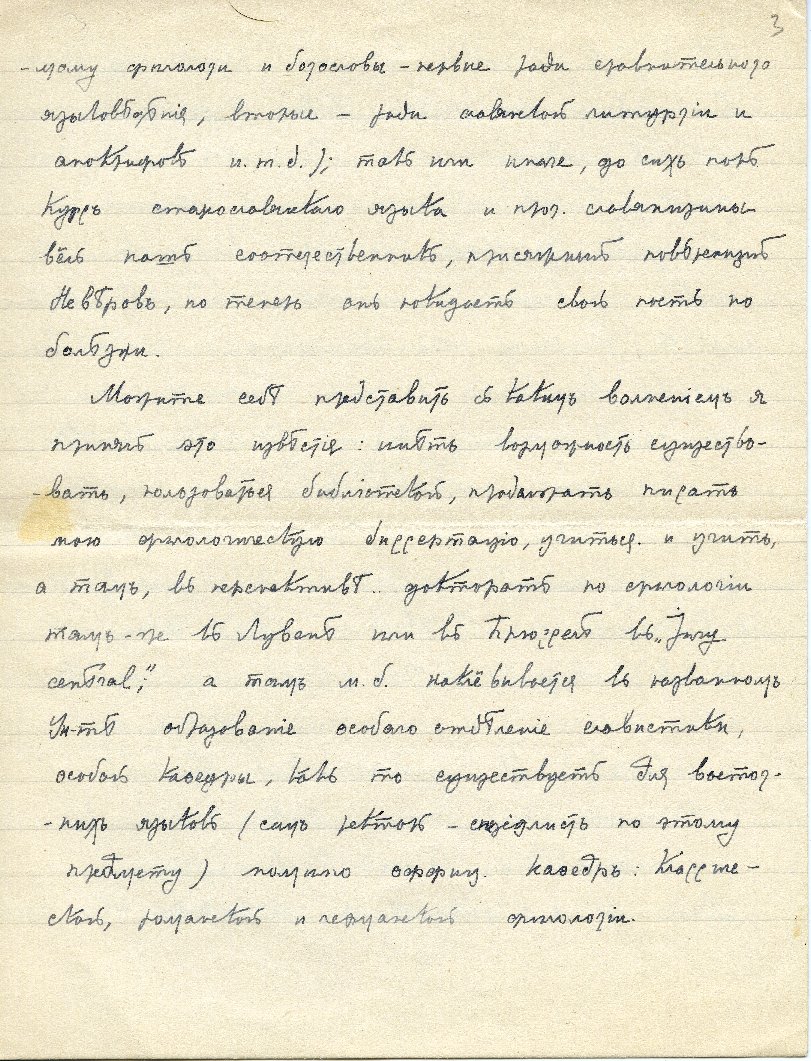 3
-тому филологи и богословы – первые ради сравнительнаго
языковѣдѣнія, вторые – ради славянской литургіи и
апокрифовъ и.т.д.); такъ или иначе, до сихъ поръ
курсъ старославянскаго языка и проч. славянизины
вёлъ нашъ соотечественникъ, присяжный повѣренный
Невѣровъ, но теперь онъ покидаетъ свой постъ по
болѣзни.
Можите себѣ представить съ какимъ волненіемъ я
принялъ это извѣстія: имѣть возможность существо-
-вать, пользоваться библіотекой, продолжать писать
мою филологическую диссертацію, учиться и учить,
а тамъ, въ перспективѣ.. докторатъ по филологіи
тамъ-же въ Лувенѣ или въ Брюсселѣ въ „Jury
central", а тамъ м.б. наклёвывается въ названномъ
Ун-тѣ образованіе особаго отдѣленіе славистики,
особой кафедры, какъ то существуетъ для восточ-
-ныхъ языковъ (самъ ректоръ – спеціалистъ по этому
предмету) помимо оффиц. кафедръ: классиче-
ской, романской и германской филологіи.